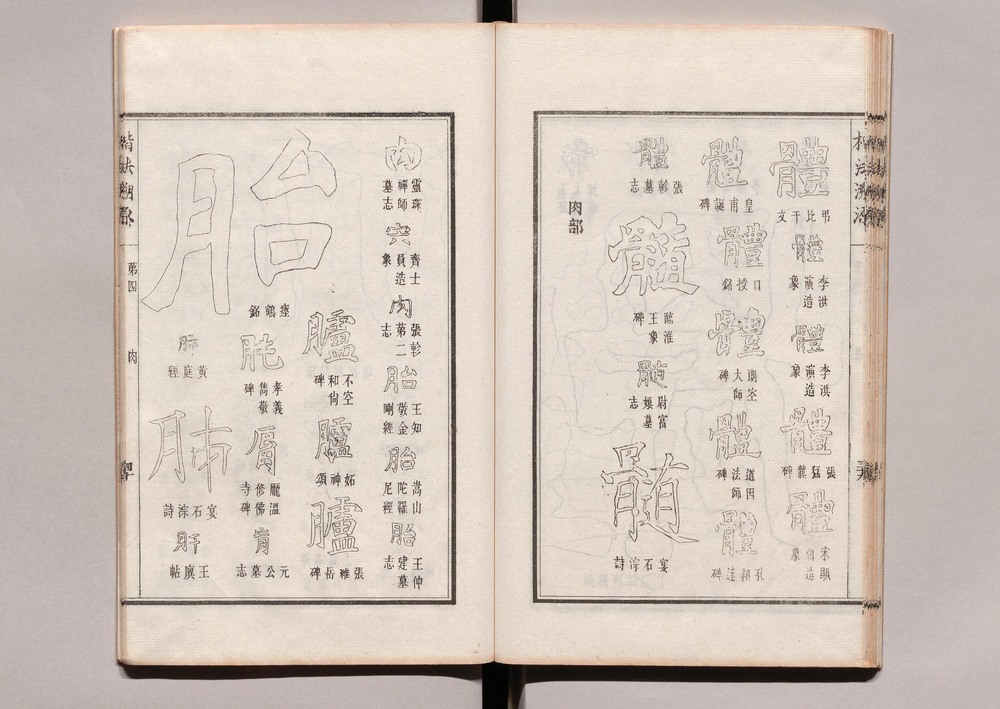 楷法溯源
體 弔比干文
體 李洪演造象
體 李洪演造象
體 張猛龍碑
體 宋顯伯造象
體 皇甫誕碑
體 口授銘
體 朗空大師碑
體 道因法師碑
體 孔穎達碑
體 張軫墓志
髓 臨淮王象碑
髓 尉富娘墓志
髓 宴石淙詩
肉部
肉 靈琛禪師墓志
肉 齊士員造象
肉 張軫第二志
胎 王知敬金剛經
胎 嵩山陀羅尼經
胎 王仲建墓志
胎 瘞鶴銘
臚 不空和尚碑
臚 妬神頌
臚 張岳碑
肫 孝義雋敬碑
脣 龎溫修佛寺碑
元公墓志
肺 黃庭經
肺 宴石淙詩
肝 王廙帖
楷法溯源
第四
肉